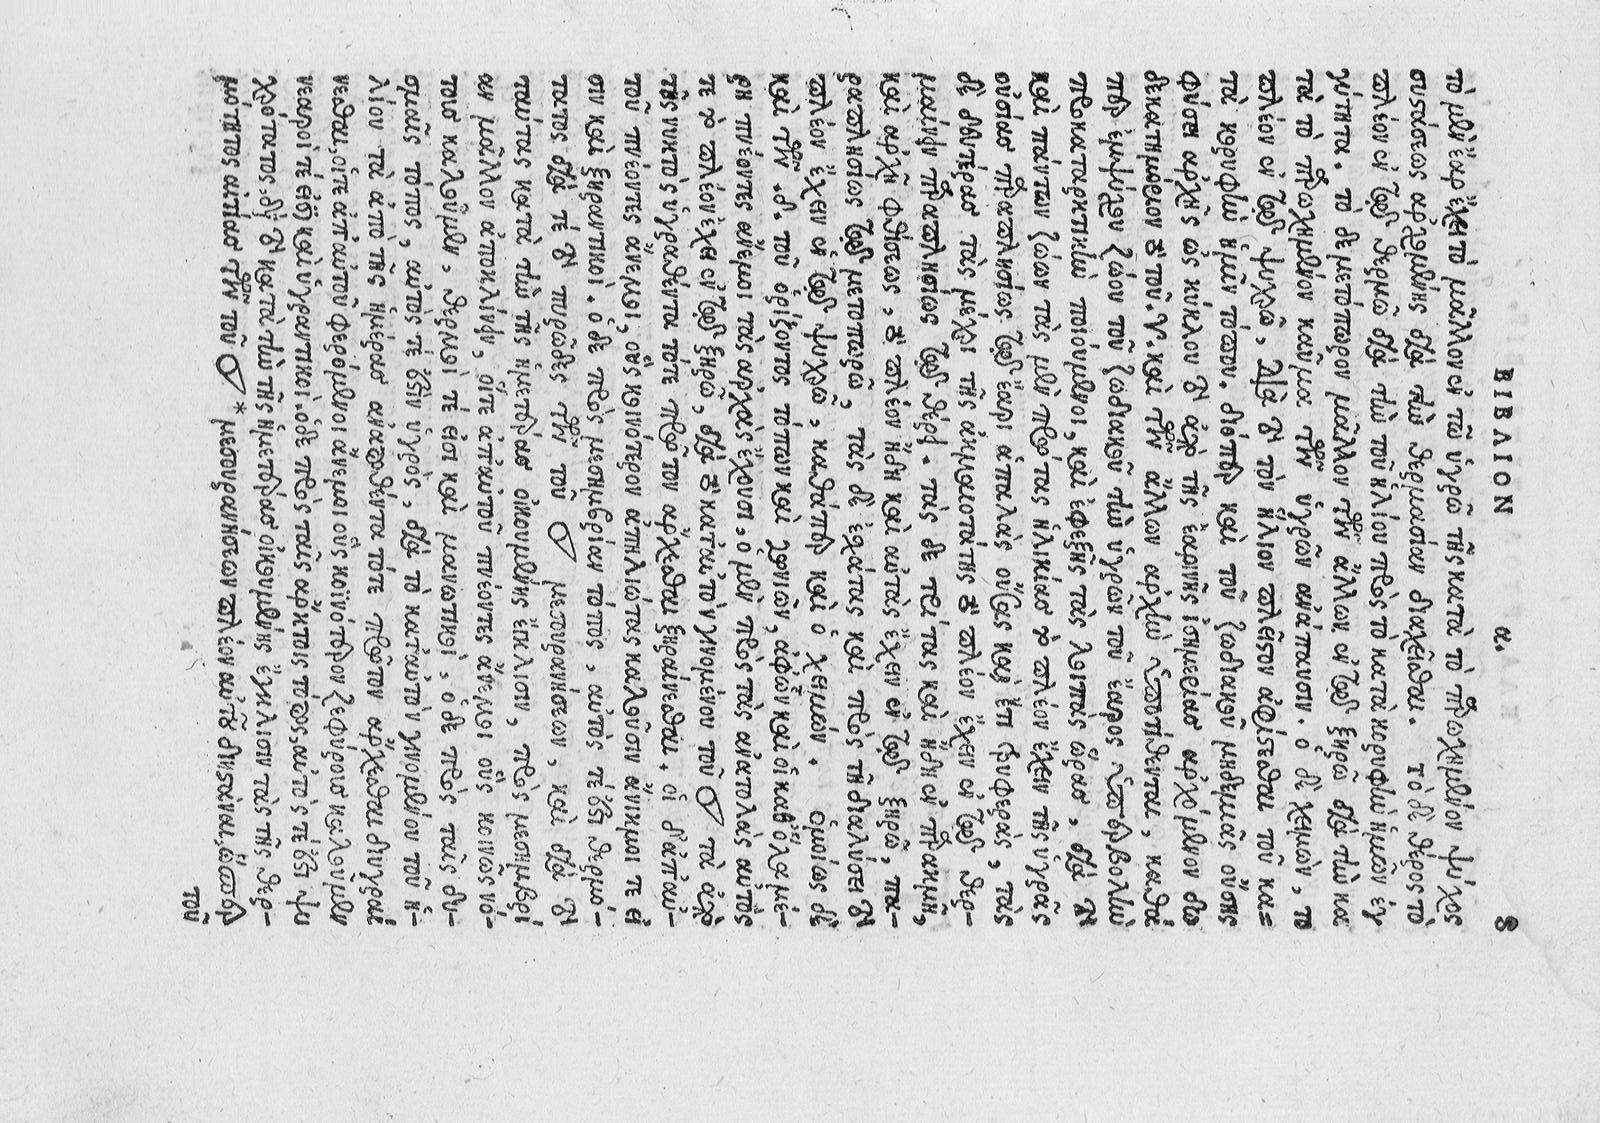 ΒΙΒΛΙΟΝ α. 8
τὸ μὲν ἔαρ ἔχει τὸ μᾶλλον ἐν τῷ ὑγρῷ τῆς κατὰ τὸ παρῳχημένον ψῦχος
συστάσεως ἀρχομένης διὰ τὴν θερμασίαν διαχεῖσθαι. τὸ δὲ θέρος τὸ
πλέον ἐν τῷ θερμῷ διὰ τὴν τοῦ ἡλίου πρὸς τὸ κατὰ κορυφὴν ἡμῶν ἐγ
γύτητα. τὸ δὲ μετόπωρον μᾶλλον τῶν ἄλλων ἐν τῷ ξηρῷ διὰ τὴν κα
τὰ τὸ παρῳχημένον καῦμα τῶν ὑγρῶν ἀνάπαυσιν. ὁ δὲ χειμὼν, τὸ
πλέον ἐν τῷ ψυχρῷ, διὰ τὸ τὸν ἥλιον πλεῖστον ἀφίστασθαι τοῦ κα=
τὰ κορυφὴν ἡμῶν τόπου. διόπερ καὶ τοῦ ζωδιακοῦ μηδεμιᾶς οὔσης
φύσει ἀρχῆς ὡς κύκλου τὸ ἀπὸ τῆς ἐαρινῆς ἰσημερίας ἀρχόμενον δω
δεκατημόριον τὸ τοῦ .♈. καὶ τῶν ἄλλων ἀρχὴν ὑποτίθενται, καθά
περ ἐμψύχου ζώου τοῦ ζωδιακοῦ τὴν ὑγρὰν τοῦ ἔαρος ὑπερβολὴν
προκαταρκτικὴν ποιούμενοι, καὶ ἐφεξῆς τὰς λοιπὰς ὥρας, διὰ τὸ
καὶ πάντων ζώων τὰς μὲν πρώτας ἡλικίας τὸ πλέον ἔχειν τῆς ὑγρᾶς
οὐσίας παραπλησίως τῷ ἔαρι ἁπαλὰς οὔσας καὶ ἔτι τρυφεράς, τὰς
δὲ δευτέρας τὰς μέχρι τῆς ἀκμαιότητος τὸ πλέον ἔχειν ἐν τῷ θερ-
μαίνειν παραπλησίως τῷ θέρει. τὰς δὲ τρίτας καὶ ἤδη ἐν παρακμῇ,
καὶ ἀρχῇ φθίσεως, τὸ πλέον ἤδη καὶ αὐτὰς ἔχειν ἐν τῷ ξηρῷ, πα-
ραπλησίως τῷ μετοπώρῳ, τὰς δὲ ἐσχάτας καὶ πρὸς τῇ διαλύσει τὸ
πλέον ἔχειν ἐν τῷ ψυχρῷ, καθάπερ καὶ ὁ χειμών. Ὁμοίως δὲ
καὶ τῶν .δ. τοῦ ὁρίζοντος τόπων καὶ γωνιῶν, ἀφ' ὧν καὶ οἱ καθ' ὅλα μέ-
ρη πνέοντες ἄνεμοι τὰς ἀρχὰς ἔχουσι. ὁ μὲν πρὸς τὰς ἀνατολὰς αὐτός
τε τὸ πλέον ἔχει ἐν τῷ ξηρῷ, διὰ τὸ κατ' αὐτὸν γινομένου τοῦ ☉ τὰ ἀπὸ
τῆς νυκτὸς ὑγρανθέντα τότε πρῶτον ἄρχεσθαι ξηραίνεσθαι. οἵ δ' ἀπ' αὐ-
τοῦ πνέοντες ἄνεμοι, οὓς κοινότερον ἀπηλιώτας καλοῦσιν ἄνικμοί τέ εἰ
σιν καὶ ξηραντικοί. ὁ δὲ πρὸς μεσημβρίαν τόπος, αὐτός τέ ἐστι θερμό-
τατος διά τε τὸ πυρῶδες τῶν τοῦ ☉ μεσουρανήσεων, καὶ διὰ τὸ
ταύτας κατὰ τὴν τῆς ἡμετέρας οἰκουμένης ἔγκλισιν, πρὸς μεσημβρί
αν μᾶλλον ἀποκλίνειν, οἵτε ἀπ' αὐτοῦ πνέοντες ἄνεμοι οὓς κοινῶς νό-
τους καλοῦμεν, θερμοί τέ εἰσι καὶ μανωτικοί. ὁ δὲ πρὸς ταῖς δυ-
σμαῖς τόπος, αὐτός τέ ἐστιν ὑγρός, διὰ τὸ κατ' αὐτὸν γινομένου τοῦ ἡ-
λίου τὰ ἀπὸ τῆς ἡμέρας ἀναποθέντα τότε πρῶτον ἄρχεσθαι διυγραί
νεσθαι, οἵτε ἀπ' αὐτοῦ φερόμενοι ἄνεμοι οὓς κοινότερον ζεφύρους καλοῦμεν
νεαροί τέ εἰσι καὶ ὑγραντικοί. ὁ δὲ πρὸς ταῖς ἄρκτοις τόπος, αὐτός τέ ἐστι ψυ
χρότατος, διὰ τὸ κατὰ τὴν τῆς ἡμετέρας οἰκουμένης ἔγκλισιν τὰς τῆς θερ-
μότητος αἰτίας τῶν τοῦ ☉ * μεσουρανήσεων πλέον αὐτοῦ διεστάναι, ὥσπερ
τοῦ